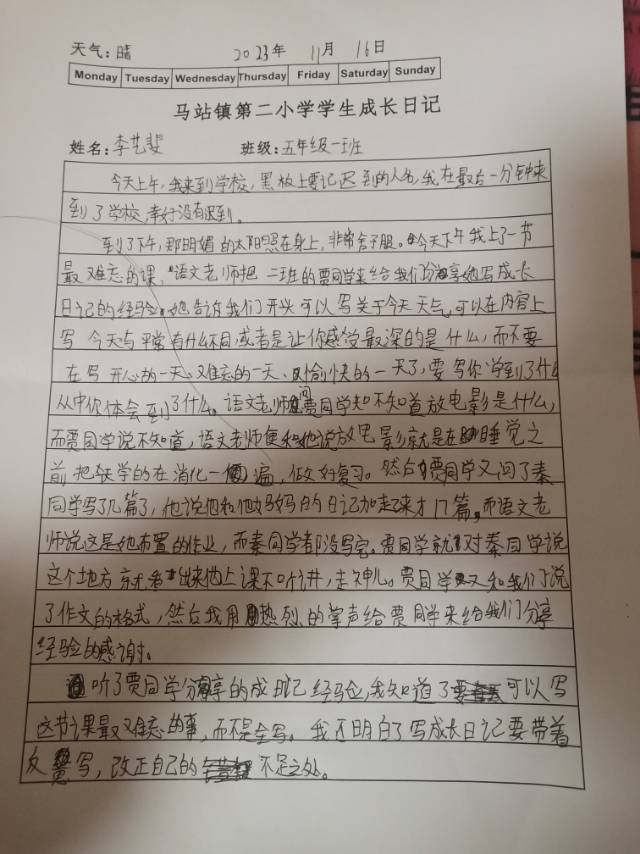 天气：晴 2023年 11月 16日
Monday Tuesday Wednesday Thursday Friday Saturday Sunday
马站镇第二小学学生成长日记
姓名：李艺斐 班级：五年级一班
今天上午，我来到学校，黑板上要记迟到的人名，我在最后一分钟来
到了学校，幸好没有迟到。
到了下午，那明媚的太阳照在身上，非常舒服。今天下午我上了一节
最难忘的课，语文老师把二班的贾同学来给我们分享她写成长
日记的经验，她告诉我们开头可以写关于今天天气，可以在内容上
写今天与平常有什么不同，或者是让你感觉最深的是什么，而不要
在写开心的一天、难忘的一天、愉快的一天了，要写你学到了什么
从中你体会到了什么。语文老师问贾同学知不知道放电影是什么，
而贾同学说不知道，语文老师便和她说放电影就是在睡觉之
前把今天学的在消化一遍，做好复习。然后贾同学又问了秦
同学写了几篇了，他说他和他妈妈的日记加起来才17篇，而语文老
师说这是她布置的作业，而秦同学都没写完。贾同学就对秦同学说
这个地方就看出来他上课不听讲，走神儿。贾同学又和我们说
了作文的格式，然后我用热烈的掌声给贾同学来给我们分享
经验的感谢。
听了贾同学分享的成长日记经验，我知道了可以写
这节课最难忘的事，而不是全写。我还明白了写成长日记要带着
反思写，改正自己的不足之处。